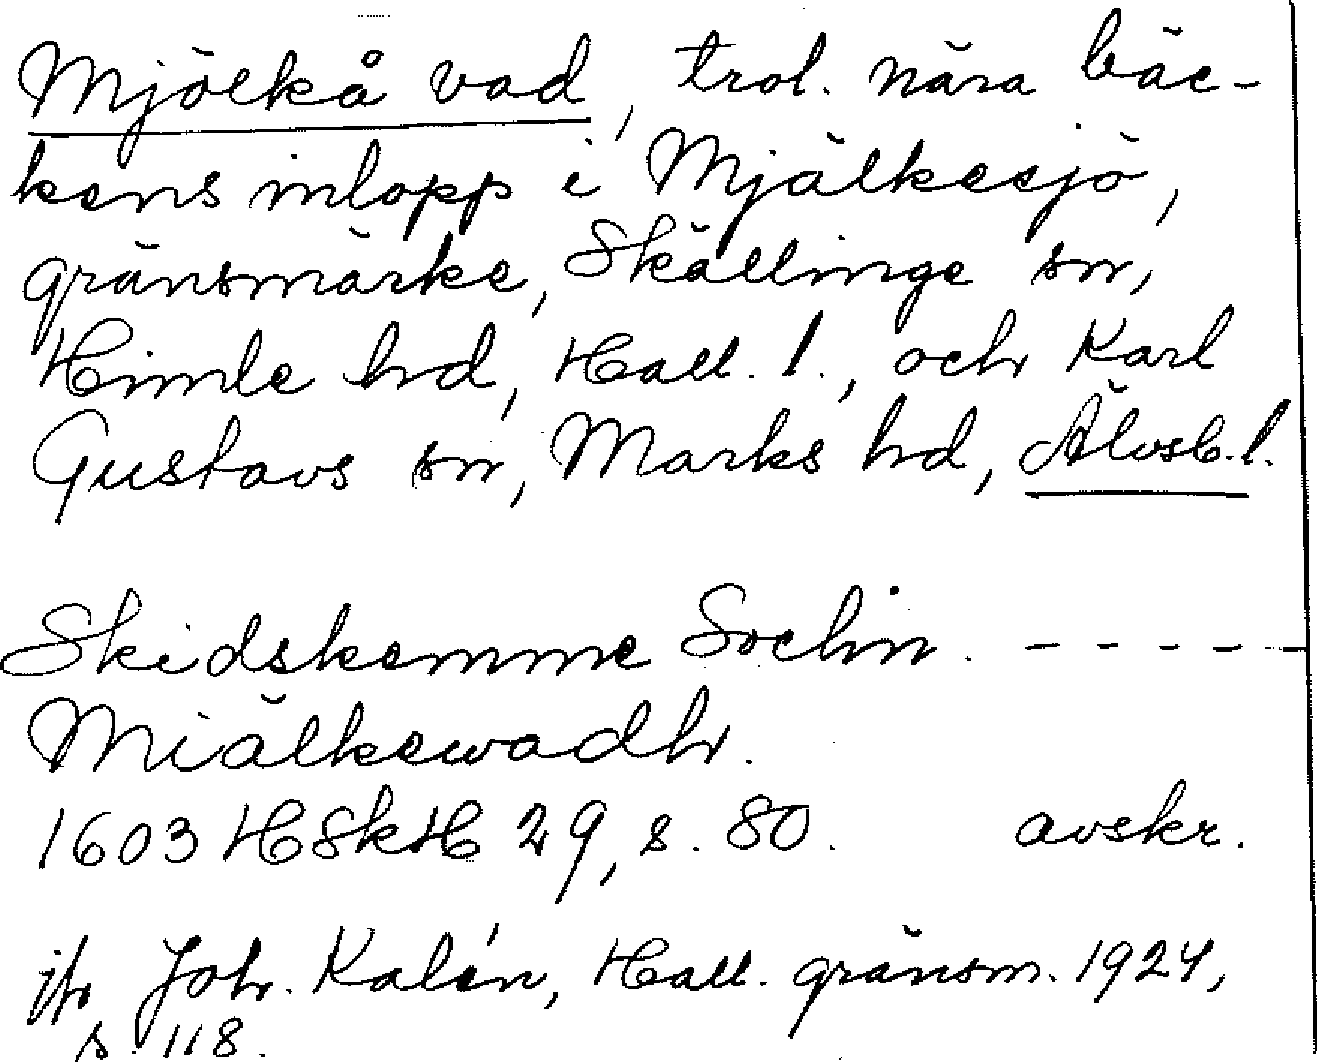 Mjölkå vad, trol. nära bäc-
kens inlopp i Mjälkesjö,
gränsmärke, Skällinge sn,
Himle hd, Hall. l., och Karl
Gustavs sn, Marks hd, Älvsb. l.
Skidskemme Soehn. - - - - -
Miälkewadh.
1603 HSkH 29, s. 80. avskr.
jfr Joh. Kalén, Hall. gränsm. 1924,
s. 118.